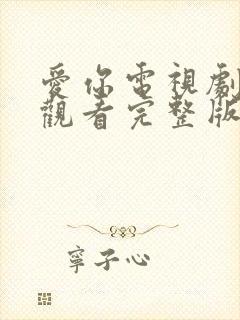 愛你電視劇
觀看完整版
寧子心